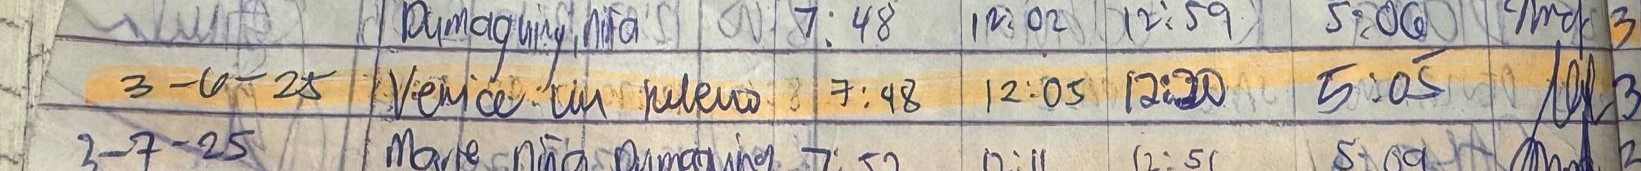 Dumaquing, niña 7:48 12:02 12:59 5:06 3
3-6-25 Venice 7:48 12:05 12:20 5:05 3
3-7-25 Marie niña Dumaquing 7:52 12:11 12:51 5:09